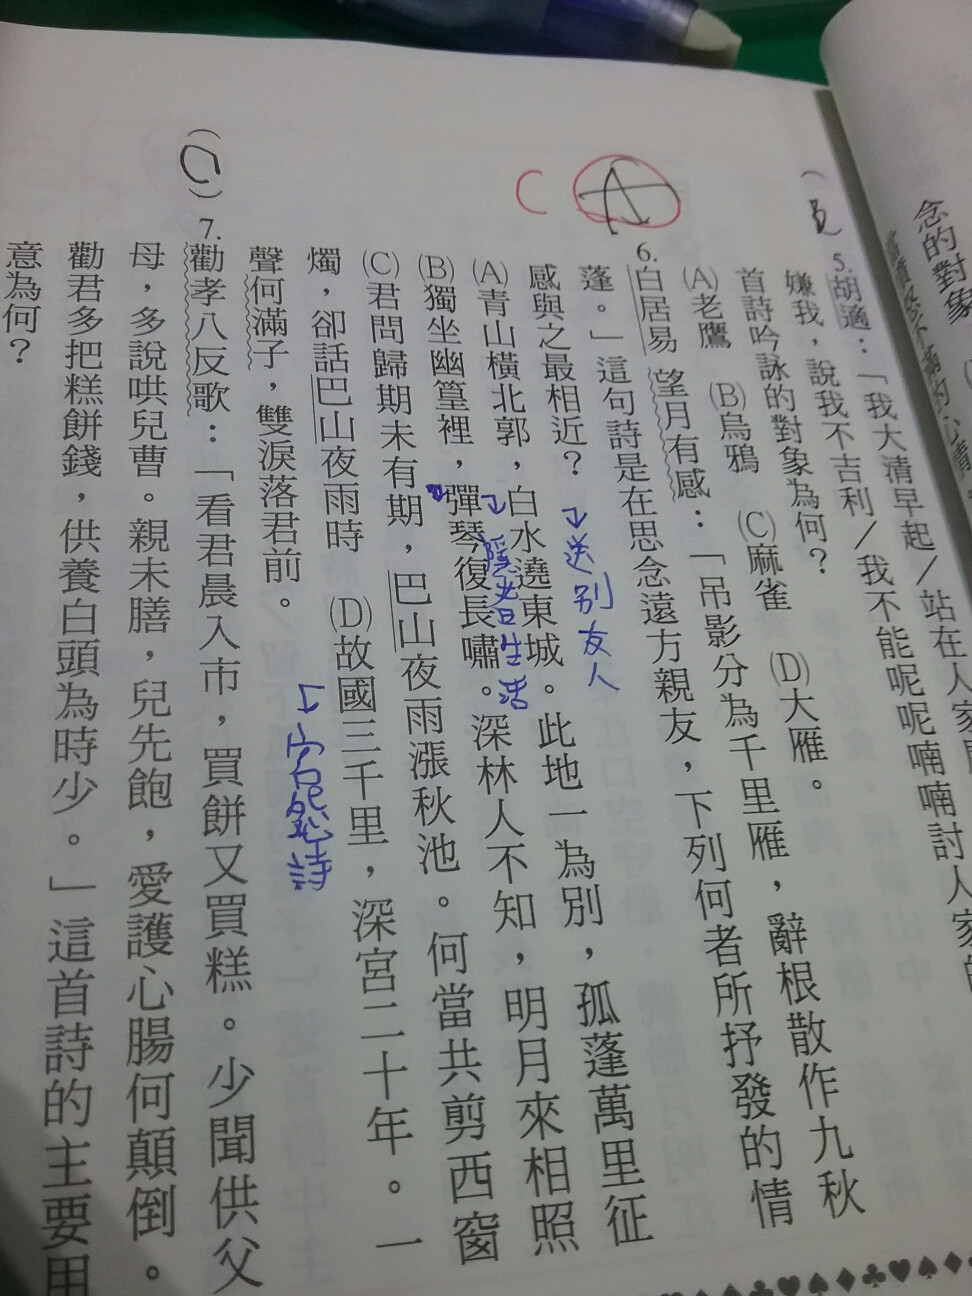 念的對象
B
5.胡適：「我大清早起／站在人家
嫌我，說我不吉利／我不能呢呢喃喃討人家的
首詩吟詠的對象為何？
(A)老鷹 (B)烏鴉 (C)麻雀 (D)大雁。
C A
6.白居易 望月有感：「吊影分為千里雁，辭根散作九秋
蓬。」這句詩是在思念遠方親友，下列何者所抒發的情
感與之最相近？
→送別友人
(A)青山橫北郭，白水遶東城。此地一為別，孤蓬萬里征
→隱者生活
(B)獨坐幽篁裡，彈琴復長嘯。深林人不知，明月來相照
(C)君問歸期未有期，巴山夜雨漲秋池。何當共剪西窗
燭，卻話巴山夜雨時 (D)故國三千里，深宮二十年。一
聲何滿子，雙淚落君前。
→宮怨詩
7.勸孝八反歌：「看君晨入市，買餅又買糕。少聞供父
母，多說哄兒曹。親未膳，兒先飽，愛護心腸何顛倒。
勸君多把糕餅錢，供養白頭為時少。」這首詩的主要用
意為何？